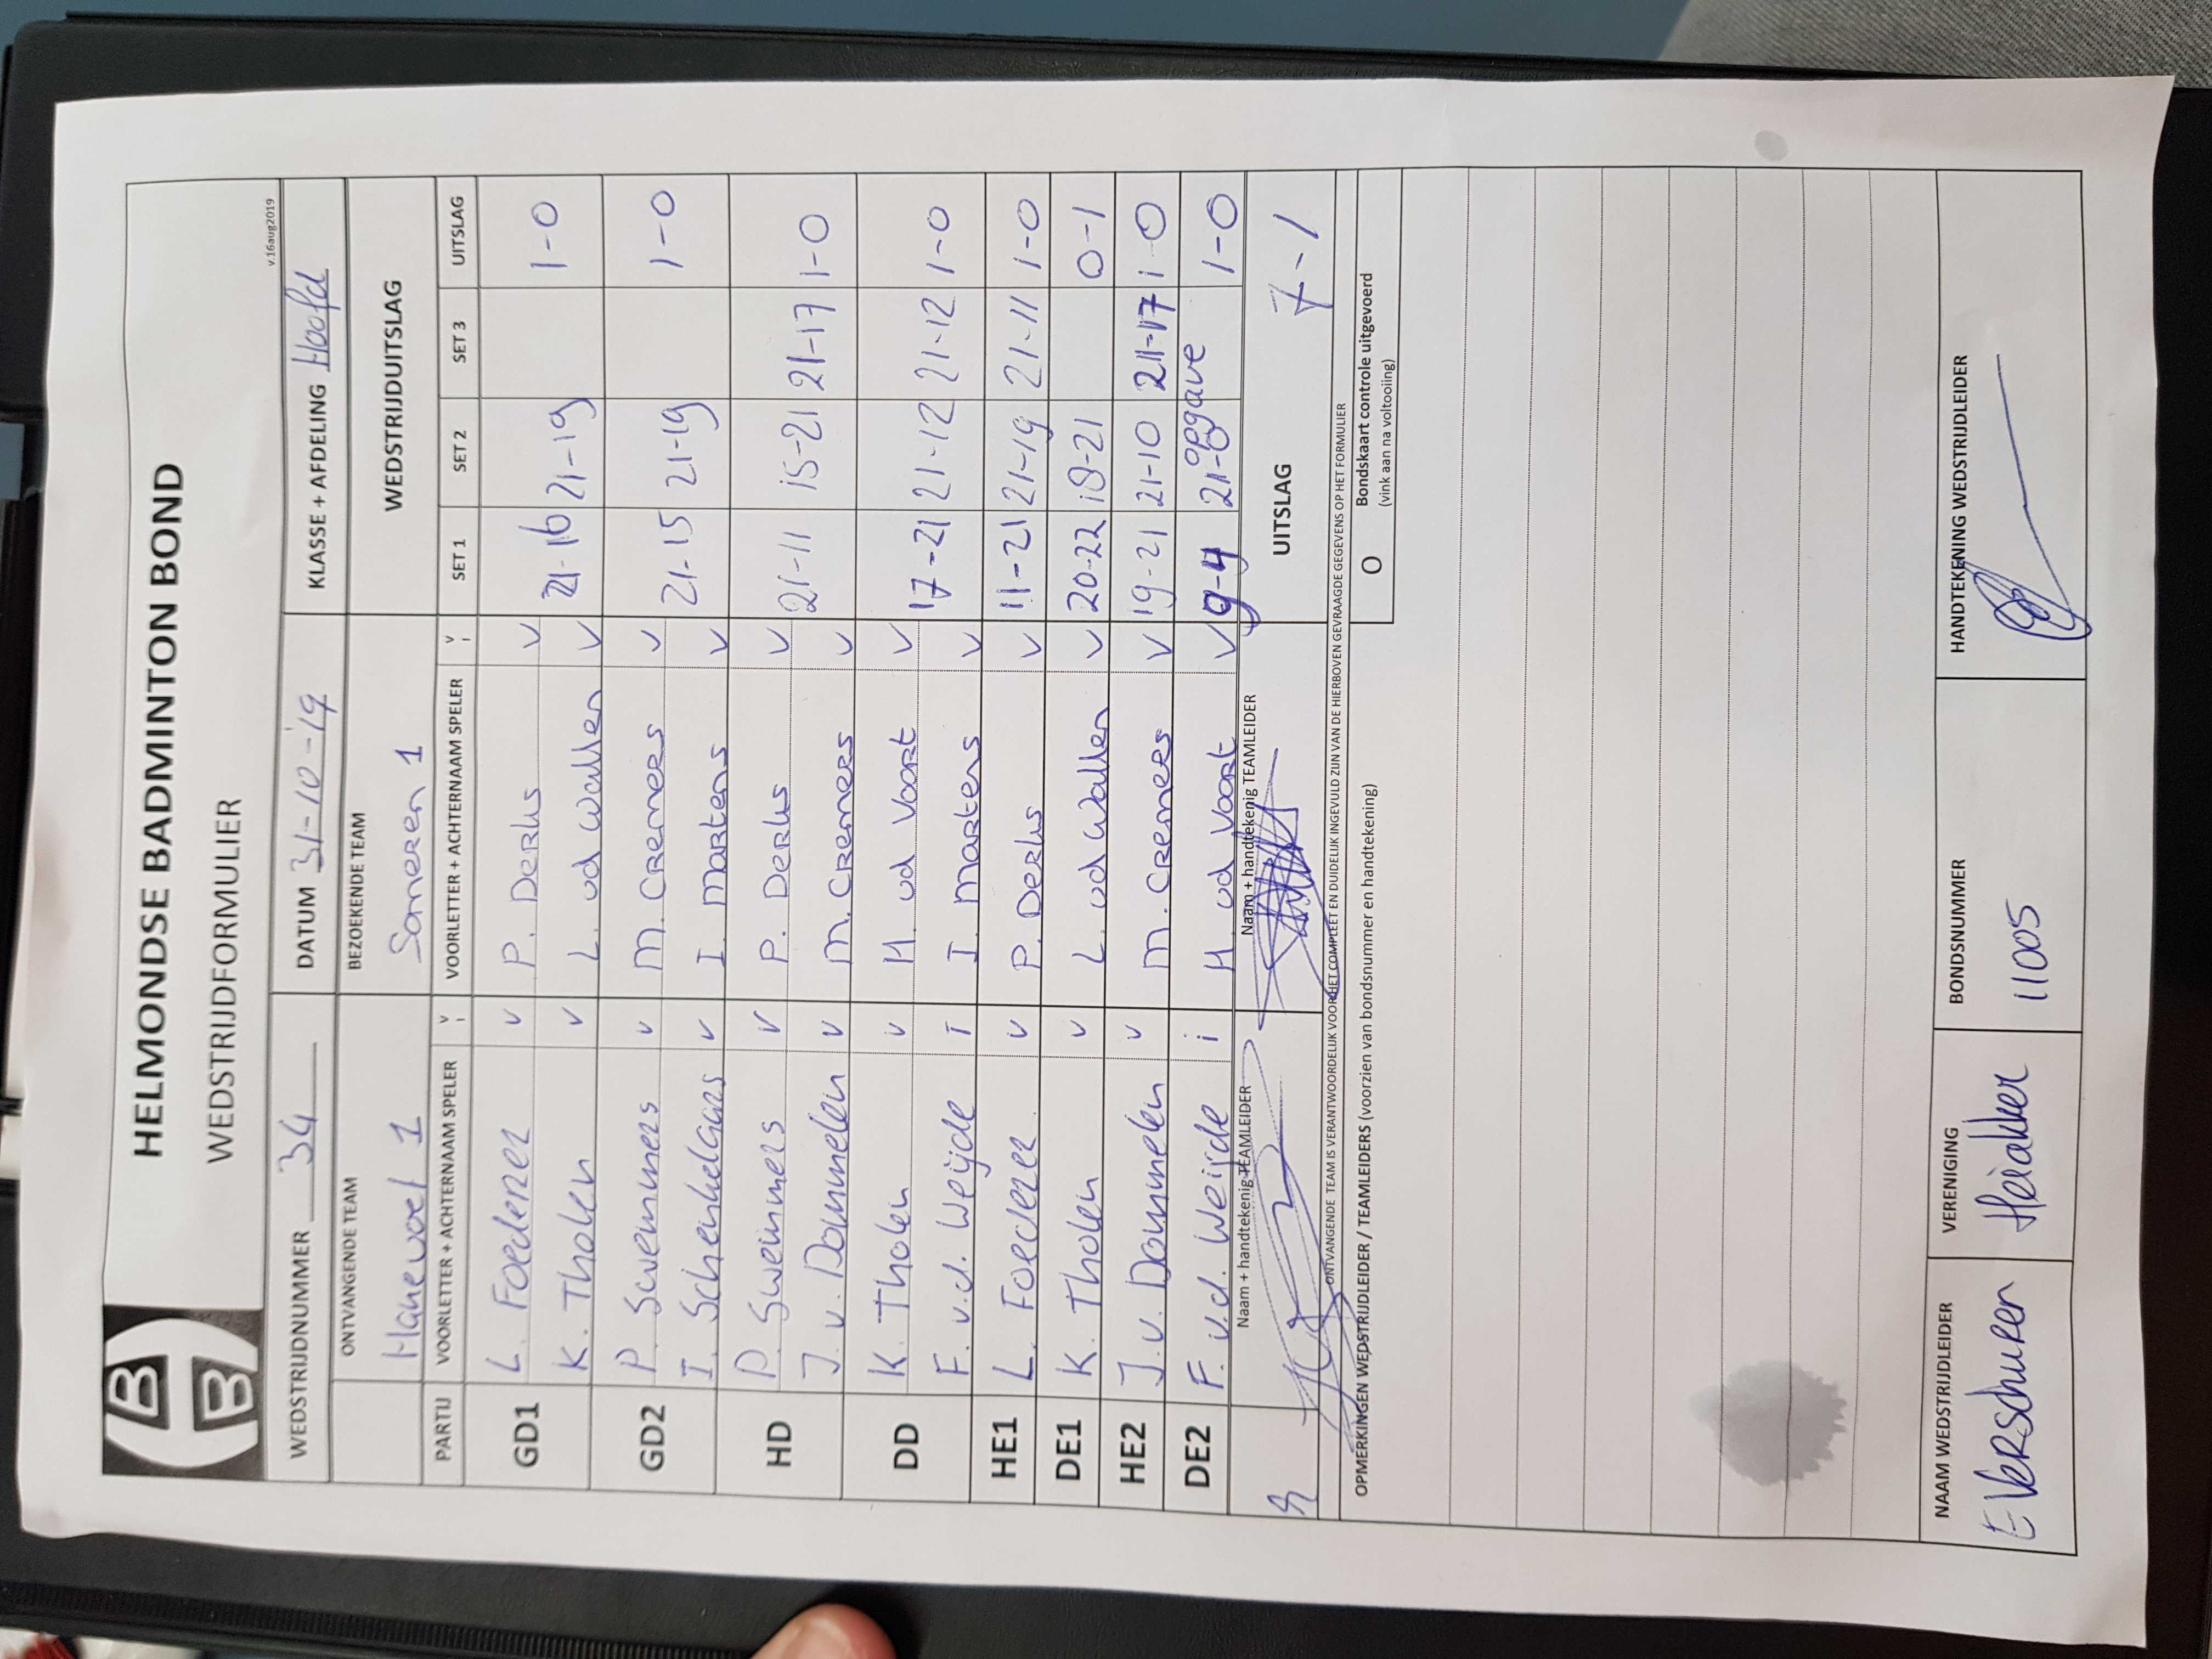 B
B
HELMONDSE BADMINTON BOND
WEDSTRIJDFORMULIER
v.16aug2019
WEDSTRIJDNUMMER 34 DATUM 31-10-'19 KLASSE + AFDELING Hoofd
ONTVANGENDE TEAM BEZOEKENDE TEAM WEDSTRIJDUITSLAG
Hanevoet 1 Someren 1
PARTIJ VOORLETTER + ACHTERNAAM SPELER V i VOORLETTER + ACHTERNAAM SPELER V i SET 1 SET 2 SET 3 UITSLAG
GD1 L. Foederer v P. Derks v 21-16 21-19 1-0
K. Tholen v L. vd Wallen v
GD2 P. Sweinmers v M. Cremers v 21-15 21-19 1-0
I. Schenkelaars v I. Martens v
HD P. Sweinmers v P. Derks v 21-11 15-21 21-17 1-0
J. v. Dommelen v M. Cremers v
DD K. Tholen v H. vd Voort v 17-21 21-12 21-12 1-0
F. v.d. Weijde i I. Martens v
HE1 L. Foederer v P. Derks v 11-21 21-19 21-11 1-0
DE1 K. Tholen v L. vd Wallen v 20-22 18-21 0-1
HE2 J. v. Dommelen v M. Cremers v 19-21 21-10 21-17 1-0
DE2 F. v.d. Weijde i H. vd Voort v 9-4 21-0 opgave 1-0
Naam + handtekenig TEAMLEIDER Naam + handtekenig TEAMLEIDER UITSLAG 7-1
ONTVANGENDE TEAM IS VERANTWOORDELIJK VOOR HET COMPLEET EN DUIDELIJK INGEVULD ZIJN VAN DE HIERBOVEN GEVRAAGDE GEGEVENS OP HET FORMULIER
OPMERKINGEN WEDSTRIJDLEIDER / TEAMLEIDERS (voorzien van bondsnummer en handtekening) O Bondskaart controle uitgevoerd
(vink aan na voltooiing)
NAAM WEDSTRIJDLEIDER VERENIGING BONDSNUMMER HANDTEKENING WEDSTRIJDLEIDER
E Verschuren Heiakker 11005